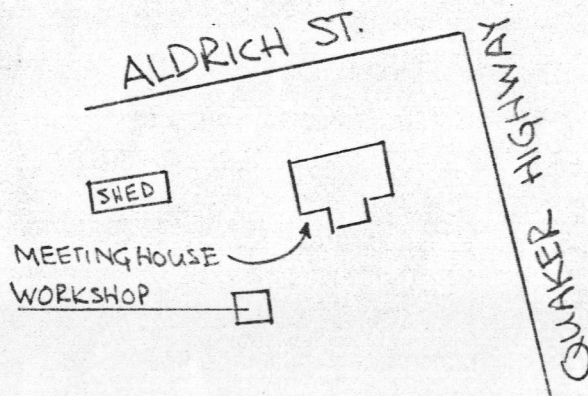 ALDRICH ST.
QUAKER HIGHWAY
SHED
MEETINGHOUSE
WORKSHOP